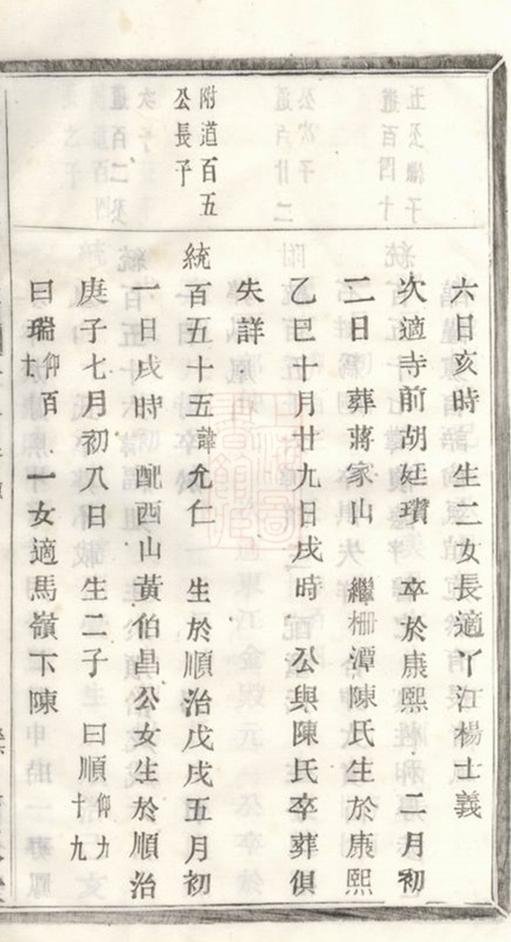 六日亥時　生二女長適丫江楊士義
次適寺前胡廷瓚　卒於康熙　二月初
二日　葬蔣家山　繼柵潭陳氏生於康熙
乙巳十月廿九日戌時　公與陳氏卒葬俱
失詳
附道百五
公長子
統百五十五諱允仁　生於順治戊戌五月初
一日戌時　配西山黃伯昌公女生於順治
庚子七月初八日　生二子　曰順仰九十九
曰瑞仰百十　一女適馬嶺下陳